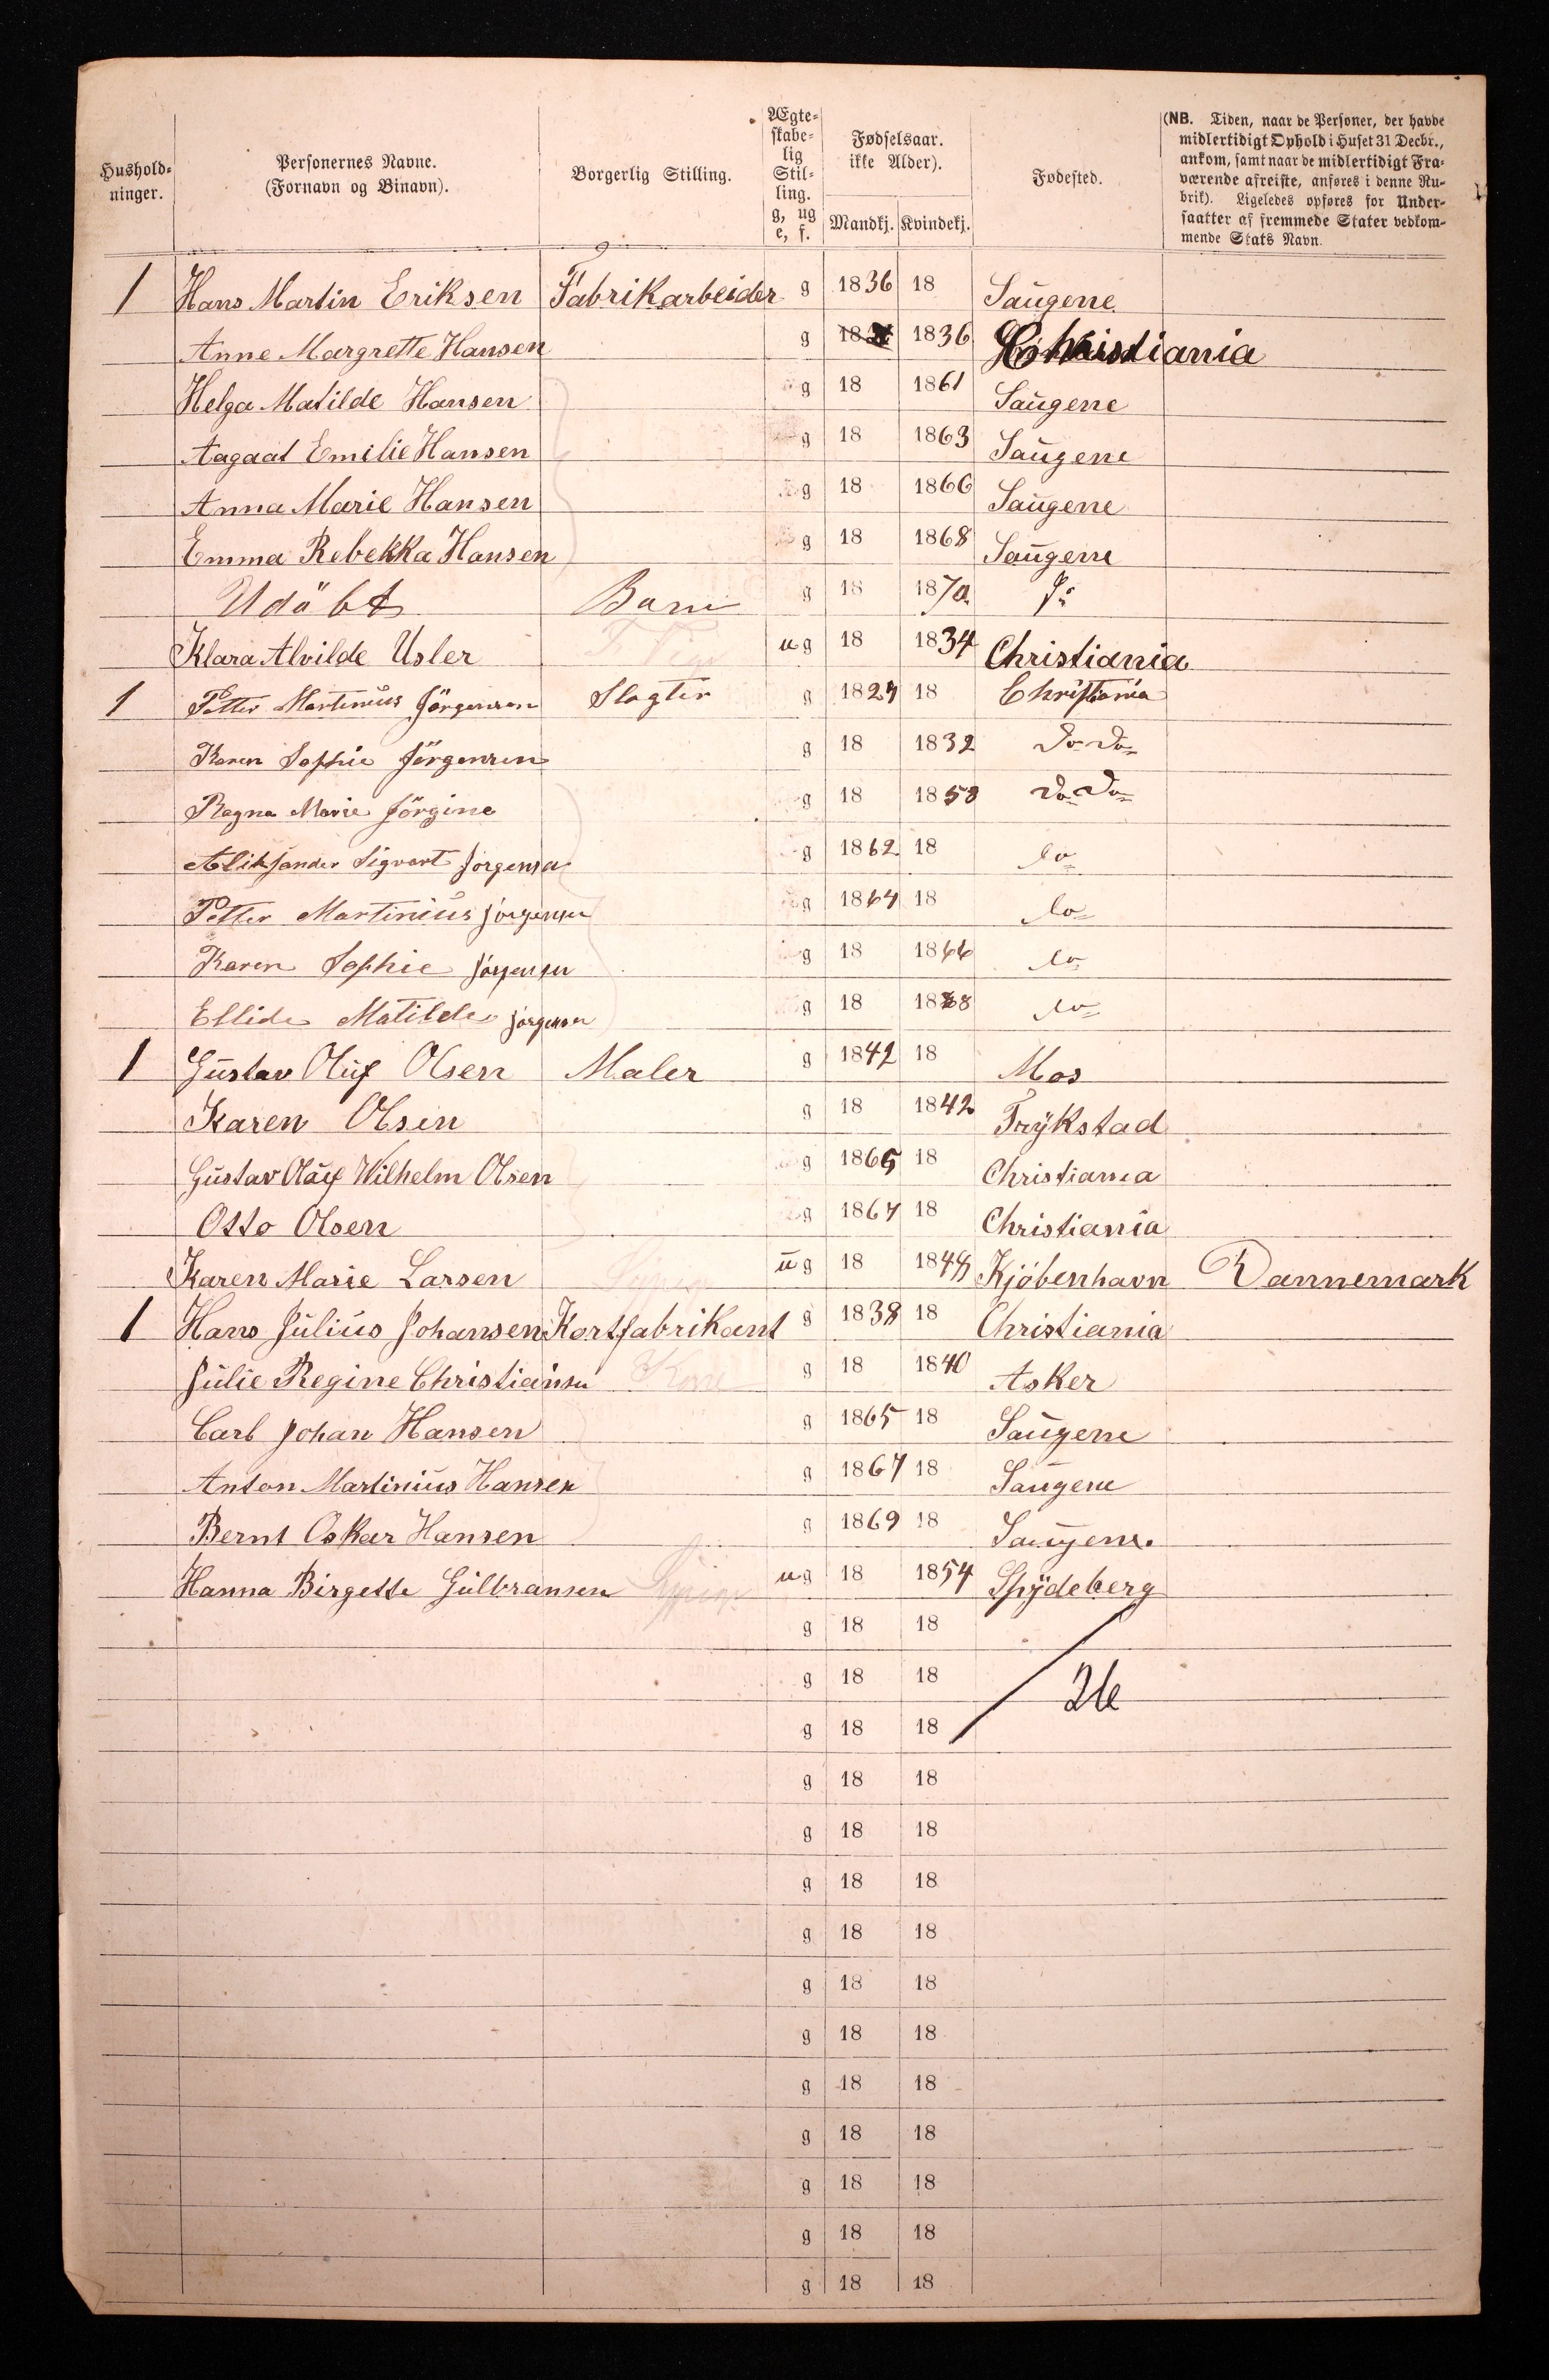 Hushold-
ninger.
Personernes Navne.
(Fornavn og Binavn).
Borgerlig Stilling.
Ægte-
skabe-
lig
Stil-
ling.
g, ug
e, f.
Fødselsaar.
ikke Alder).
Mandkj. Kvindekj.
Fødested.
(NB. Tiden, naar de Personer, der havde
midlertidigt Ophold i Huset 31 Decbr.,
ankom, samt naar de midlertidigt Fra-
værende afreiste, anføres i denne Ru-
brik). Ligeledes opføres for Under-
saatter af fremmede Stater vedkom-
mende Stats Navn.
1 Hans Martin Eriksen Fabrikarbeider g 1836 18 Saugene
Anne Margrette Hansen g 18 1836 Christiania
Helga Matilde Hansen g 18 1861 Saugene
Aagaat Emilie Hansen g 18 1863 Saugene
Anna Marie Hansen g 18 1866 Saugene
Emma Rebekka Hansen g 18 1868 Saugene
Udöbt Barn g 18 1870
Klara Alvilde Usler ug 18 1834 Christiania
1 Petter Martinius Jörgensen Slagter g 1827 18 Christiania
Karen Sophie Jörgensen g 18 1832 Do Do
Ragna Marie Jörgine g 18 1858 Do Do
Aleksander Sigvart Jörgensen g 1862 18 Do
Petter Martinius Jörgensen g 1864 18 Do
Karen Sophie Jörgensen g 18 1866 Do
Ellide Matilde Jörgensen g 18 1868 Do
1 Gustav Oluf Olsen Maler g 1842 18 Mos
Karen Olsen g 18 1842 Trykstad
Gustav Oluf Wilhelm Olsen g 1865 18 Christiania
Otto Olsen g 1867 18 Christiania
Karen Marie Larsen ug 18 1848 Kjöbenhavn Dannemark
1 Hans Julius Johansen Kortfabrikant g 1838 18 Christiania
Julie Regine Christiansen Kone g 18 1840 Asker
Carl Johan Hansen g 1865 18 Saugene
Anton Martinius Hansen g 1867 18 Saugene
Bernt Oskar Hansen g 1869 18 Saugene.
Hanna Birgette Gulbransen ug 18 1854 Spydeberg
g 18 18
g 18 18 26
g 18 18
g 18 18
g 18 18
g 18 18
g 18 18
g 18 18
g 18 18
g 18 18
g 18 18
g 18 18
g 18 18
g 18 18